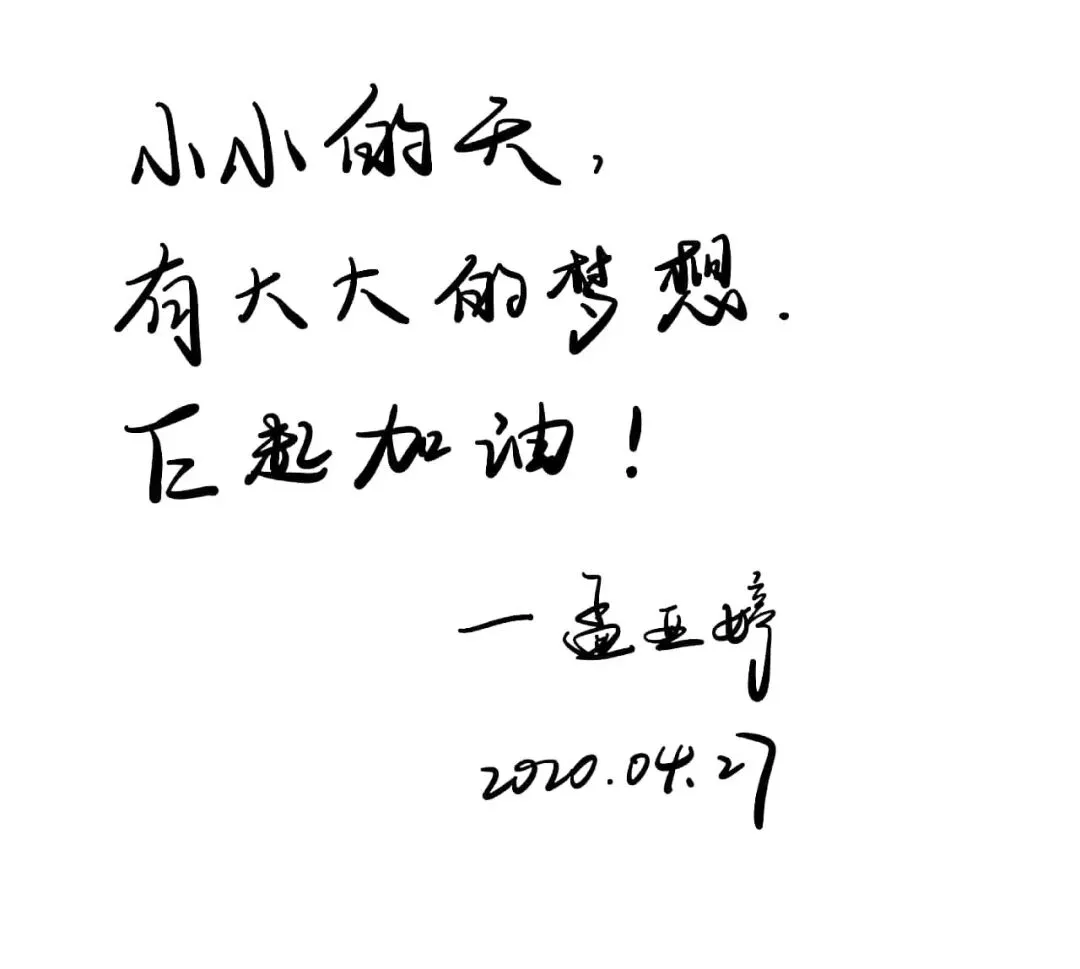 小小的天，
有大大的梦想.
起加油！
—孟亚婷
2020.04.27